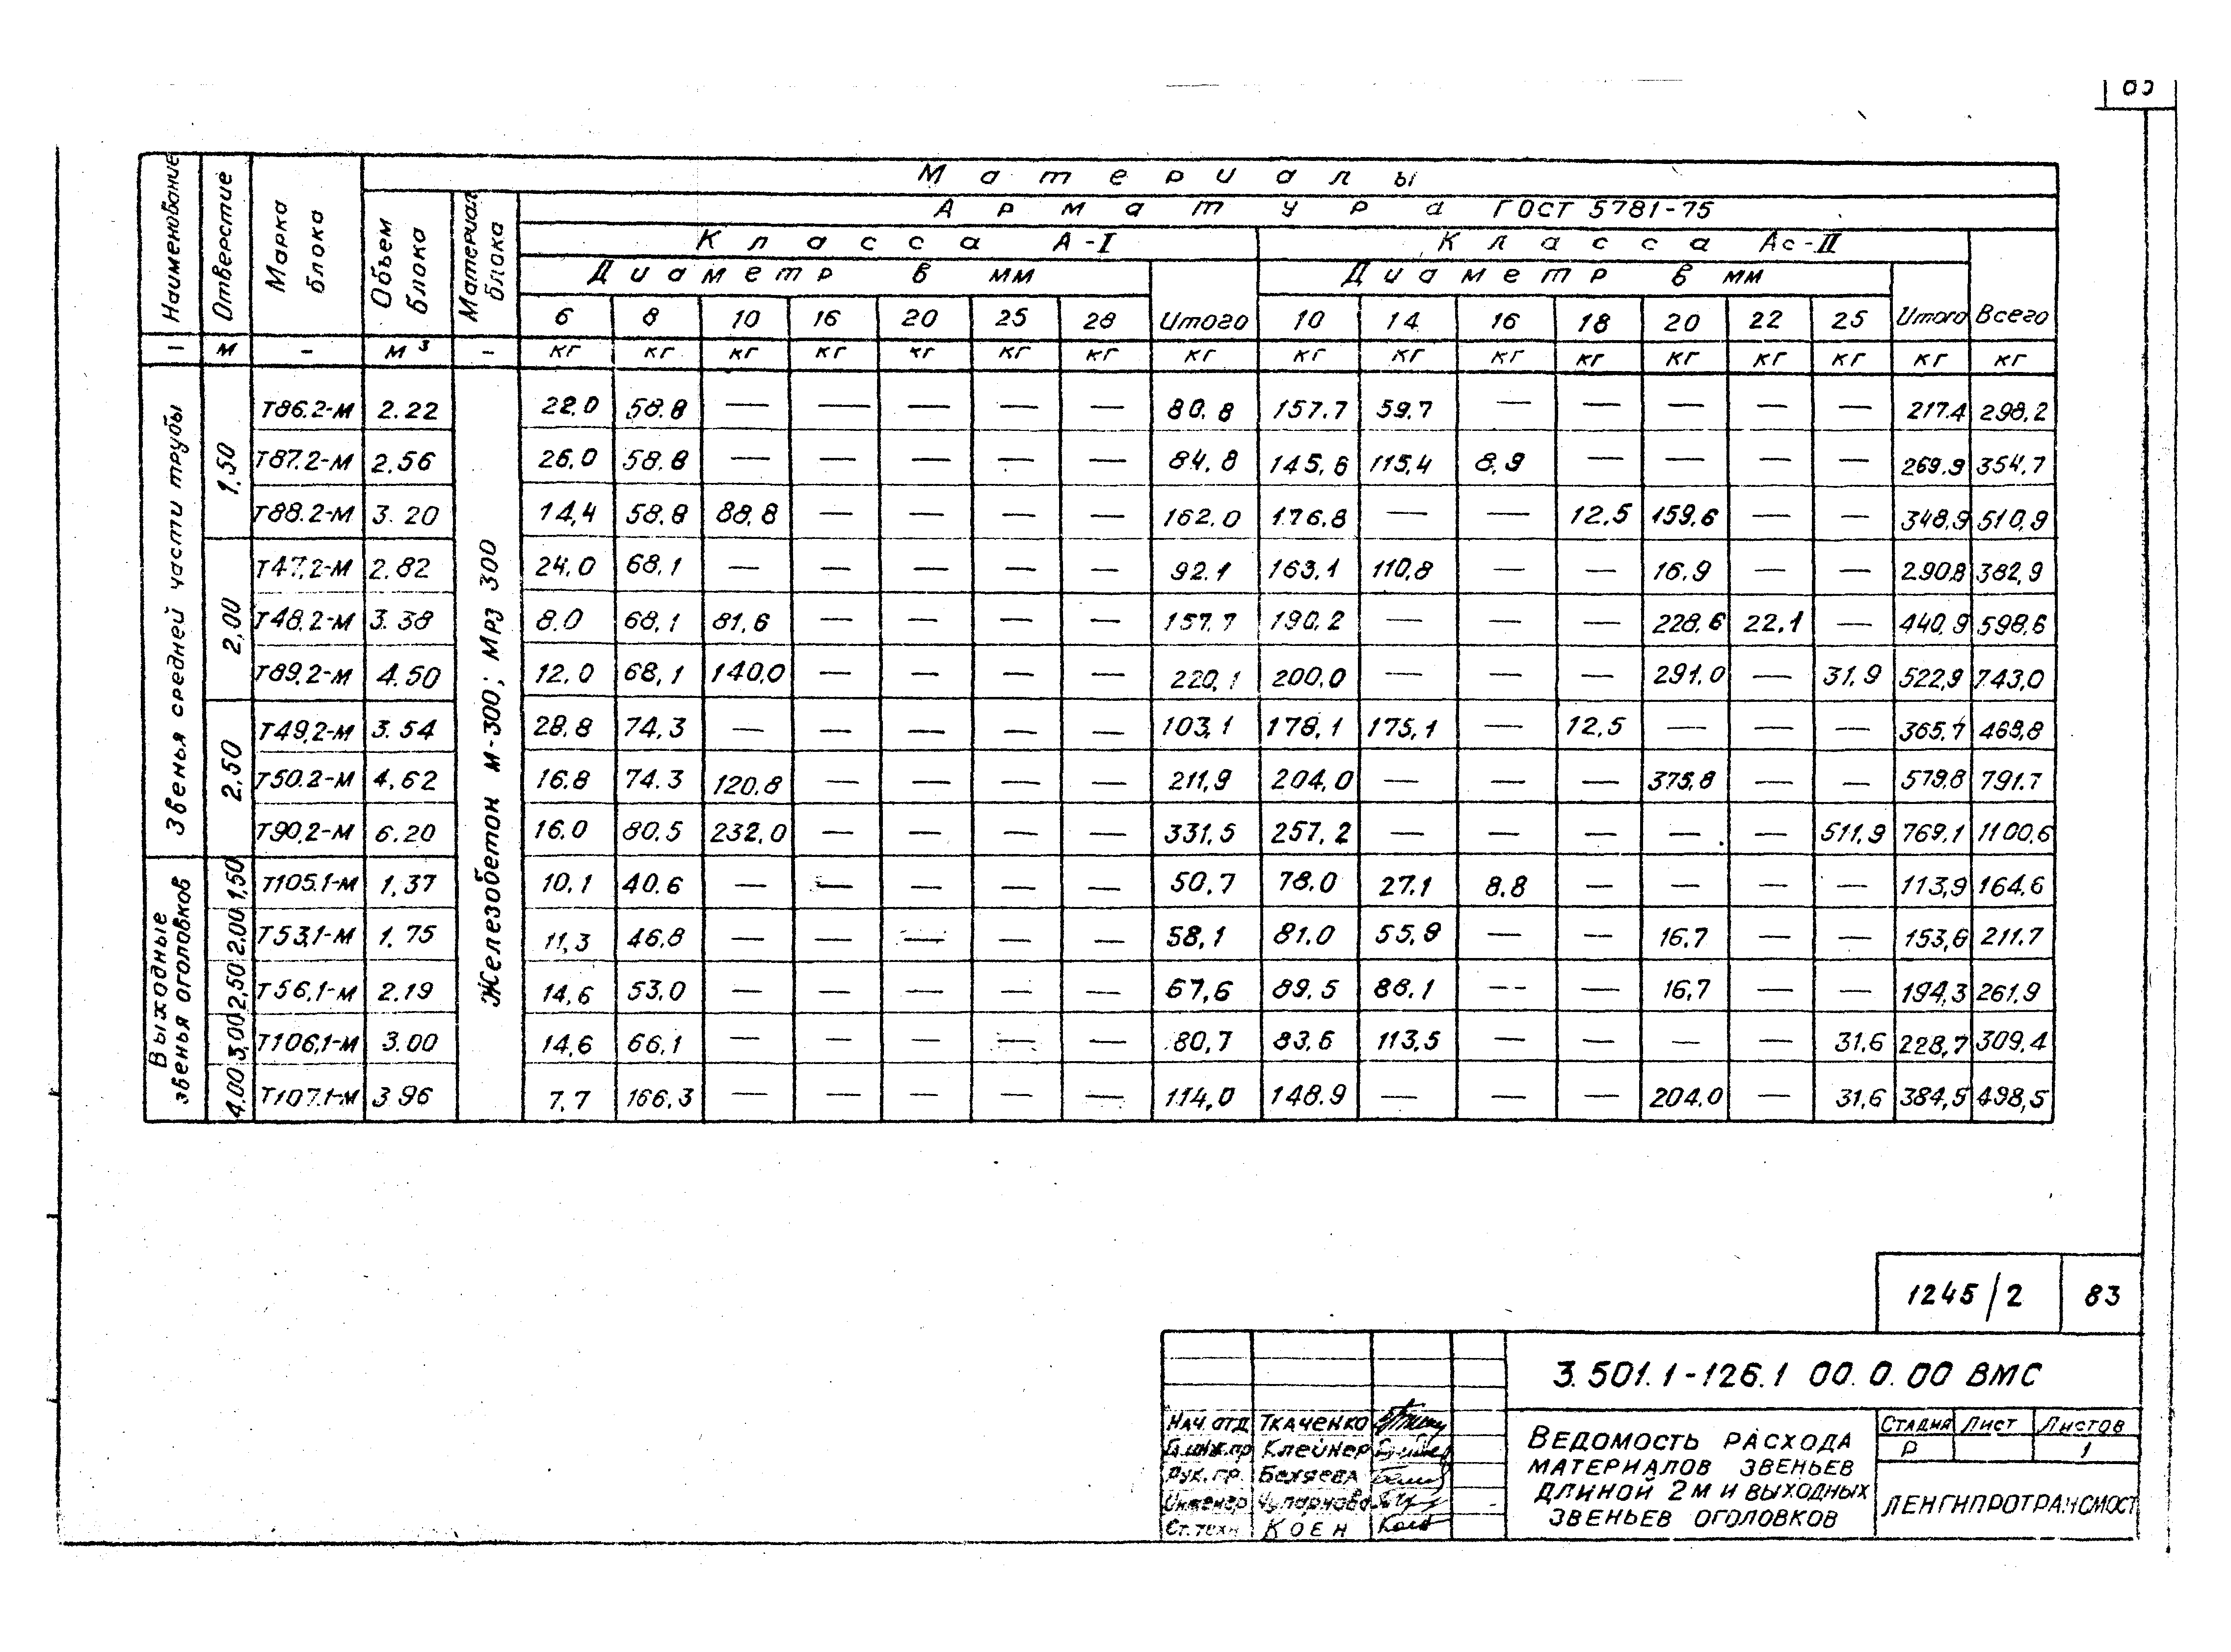 Материалы
Арматура ГОСТ 5781-75
Класса А-I Класса Ас-II
Диаметр в мм Диаметр в мм
Наименование Отверстие Марка блока Объем блока Материал блока 6 8 10 16 20 25 28 Итого 10 14 16 18 20 22 25 Итого Всего
— м — м³ — кг кг кг кг кг кг кг кг кг кг кг кг кг кг кг кг кг
Звенья средней части трубы
Железобетон м-300; Мрз 300
1,50
Т86.2-м 2.22 22.0 58.8 — — — — — 80.8 157.7 59.7 — — — — — 217.4 298.2
Т87.2-м 2.56 26.0 58.8 — — — — — 84.8 145,6 115,4 8,9 — — — — 269.9 354,7
Т88.2-м 3.20 14,4 58.8 88,8 — — — — 162.0 176.8 — — 12,5 159,6 — — 348,9 510,9
2,00
Т47,2-м 2.82 24.0 68,1 — — — — — 92.1 163,1 110,8 — — 16,9 — — 290,8 382,9
Т48.2-м 3.38 8.0 68,1 81,6 — — — — 157.7 190,2 — — — 228,6 22,1 — 440,9 598,6
Т89,2-м 4.50 12,0 68,1 140,0 — — — — 220,1 200,0 — — — 291,0 — 31,9 522,9 743,0
2,50
Т49,2-м 3.54 28.8 74.3 — — — — — 103,1 178,1 175,1 — 12,5 — — — 365,7 468,8
Т50.2-м 4,62 16.8 74.3 120,8 — — — — 211,9 204,0 — — — 375,8 — — 579,8 791.7
Т90,2-м 6.20 16.0 80,5 232,0 — — — — 331,5 257,2 — — — — — 511,9 769,1 1100,6
Выходные звенья оголовков
1,50 Т105.1-м 1,37 10,1 40.6 — — — — — 50,7 78.0 27.1 8.8 — — — — 113,9 164,6
2.00 Т53,1-м 1,75 11,3 46.8 — — — — — 58,1 81.0 55,9 — — 16,7 — — 153,6 211.7
2,50 Т56,1-м 2.19 14,6 53.0 — — — — — 67,6 89.5 88.1 — — 16,7 — — 194,3 261,9
3,00 Т106,1-м 3.00 14,6 66,1 — — — — — 80,7 83.6 113,5 — — — — 31.6 228,7 309,4
4,00 Т107.1-м 3 96 7,7 166,3 — — — — — 114,0 148.9 — — — 204.0 — 31,6 384,5 498,5
1245/2 83
3.501.1-126.1 00.0.00 ВМС
Нач отд Ткаченко
Гл.инж.пр Клейнер
Рук. гр.
Инженер
Ст. техн Коен
Ведомость расхода
материалов звеньев
длиной 2м и выходных
звеньев оголовков
Стадия Лист Листов
Р 1
Ленгипротрансмост